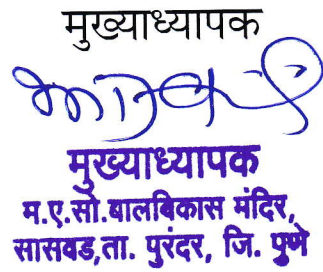 मुख्याध्यापक
मुख्याध्यापक
म.ए.सो.बालबिकास मंदिर,
सासवड,ता. पुरंदर, जि. पुणे